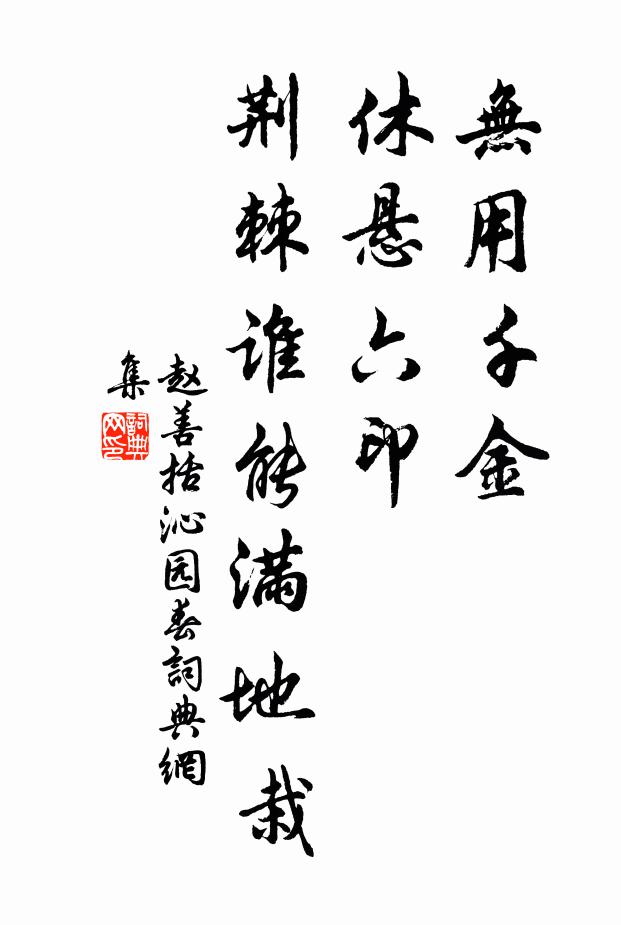 無用千金
休悬六印
荆棘谁能满地栽
赵善括沁园春詞典網
集
詞典網印